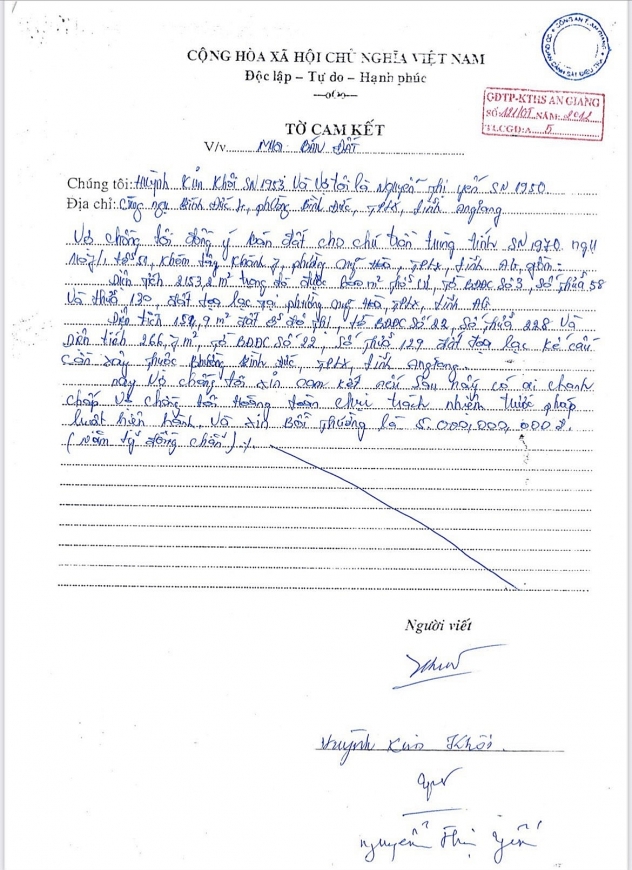 CỘNG HÒA XÃ HỘI CHỦ NGHĨA VIỆT NAM
Độc lập – Tự do – Hạnh phúc
GĐTP-KTHS AN GIANG
SỐ: NĂM: 2012
TLCGĐ: A 5
TỜ CAM KẾT
V/v Mua BÁN ĐẤT
Chúng tôi: Huỳnh Kim Khôi SN 1953 Và Vợ tôi là Nguyễn Thị Yến SN 1950.
Địa chỉ: Bình Đức, phường Bình Đức, TPLX, tỉnh An giang
Vợ chồng tôi đồng ý Bán đất cho chú Trần Trung Tính SN 1970. ngụ
Khóm Tây Khánh 7, phường Mỹ Hòa, TPLX, tỉnh AG, gồm:
Diện tích 2153,2 m² trong đó được tờ BĐĐC Số 3, Số thửa 58
Và thửa 120, đất tọa lạc tại phường Mỹ Hòa, TPLX, tỉnh AG
Diện tích m² đất ở đô thị, tờ BĐĐC Số 22, Số thửa 228 Và
Diện tích 266,7 m², tờ BĐĐC Số 22, Số thửa 129 đất tọa lạc kế cầu
Cần Xây thuộc Phường Bình Đức, TPLX, tỉnh An giang.
này Vợ chồng tôi xin cam kết nếu Sau này có ai tranh
chấp Vợ chồng tôi hoàn toàn chịu trách nhiệm trước pháp
luật hiện hành. Và xin Bồi thường là 5.000.000.000đ.
(năm tỷ đồng chẵn)./.
Người viết
Huỳnh Kim Khôi.
Nguyễn Thị Yến